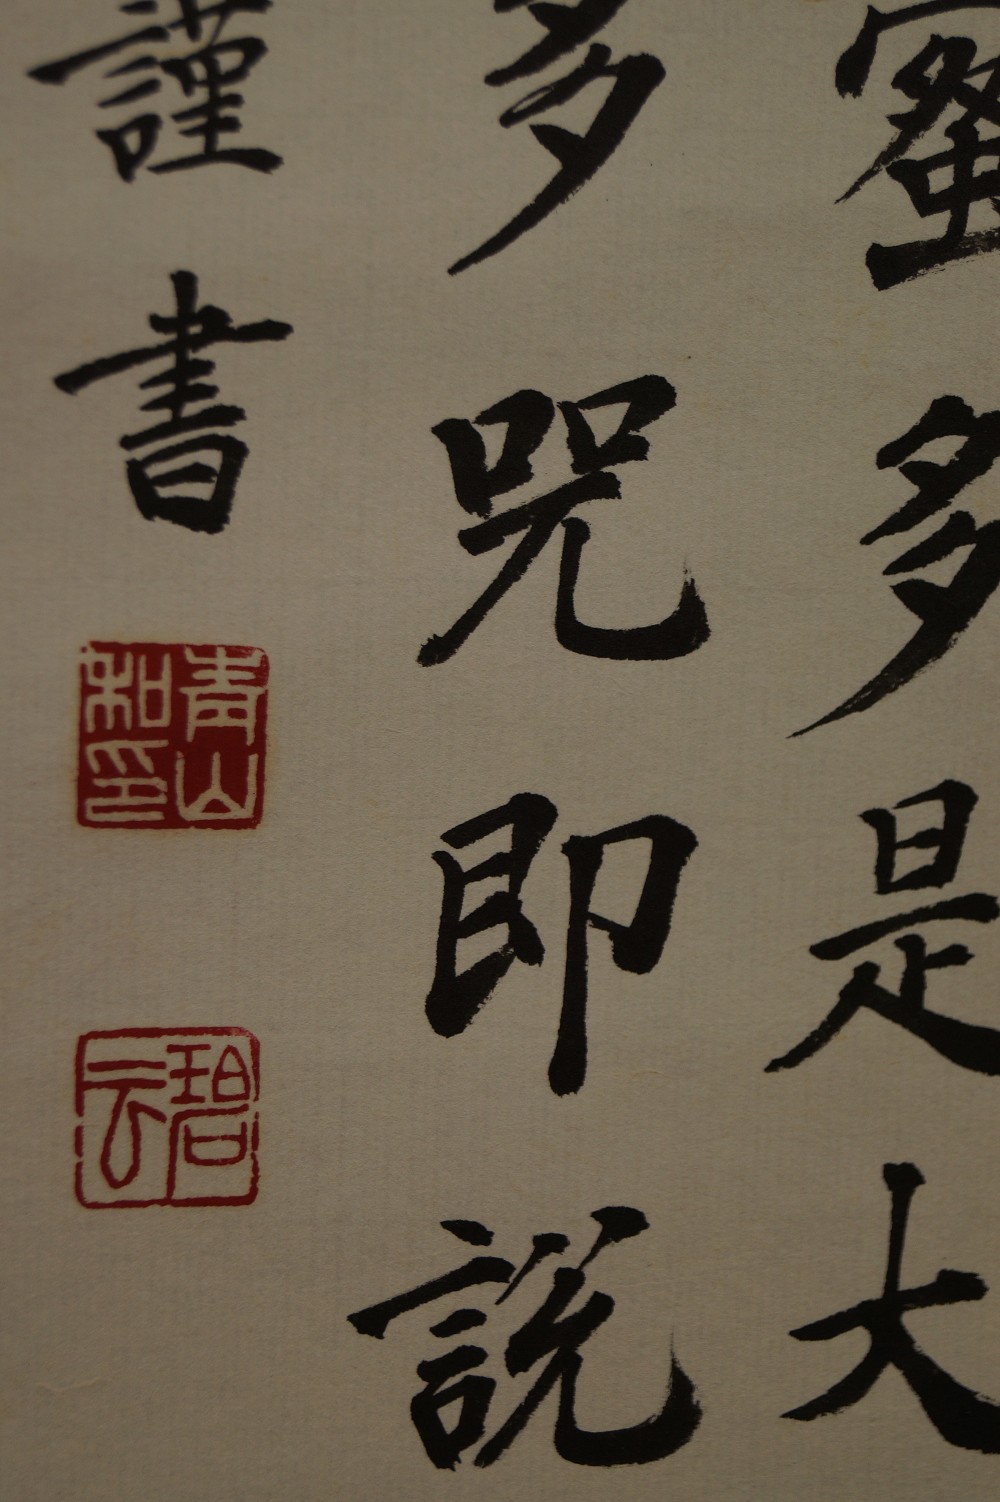 蜜多是大
多咒即説
謹書
青山和印
碧云